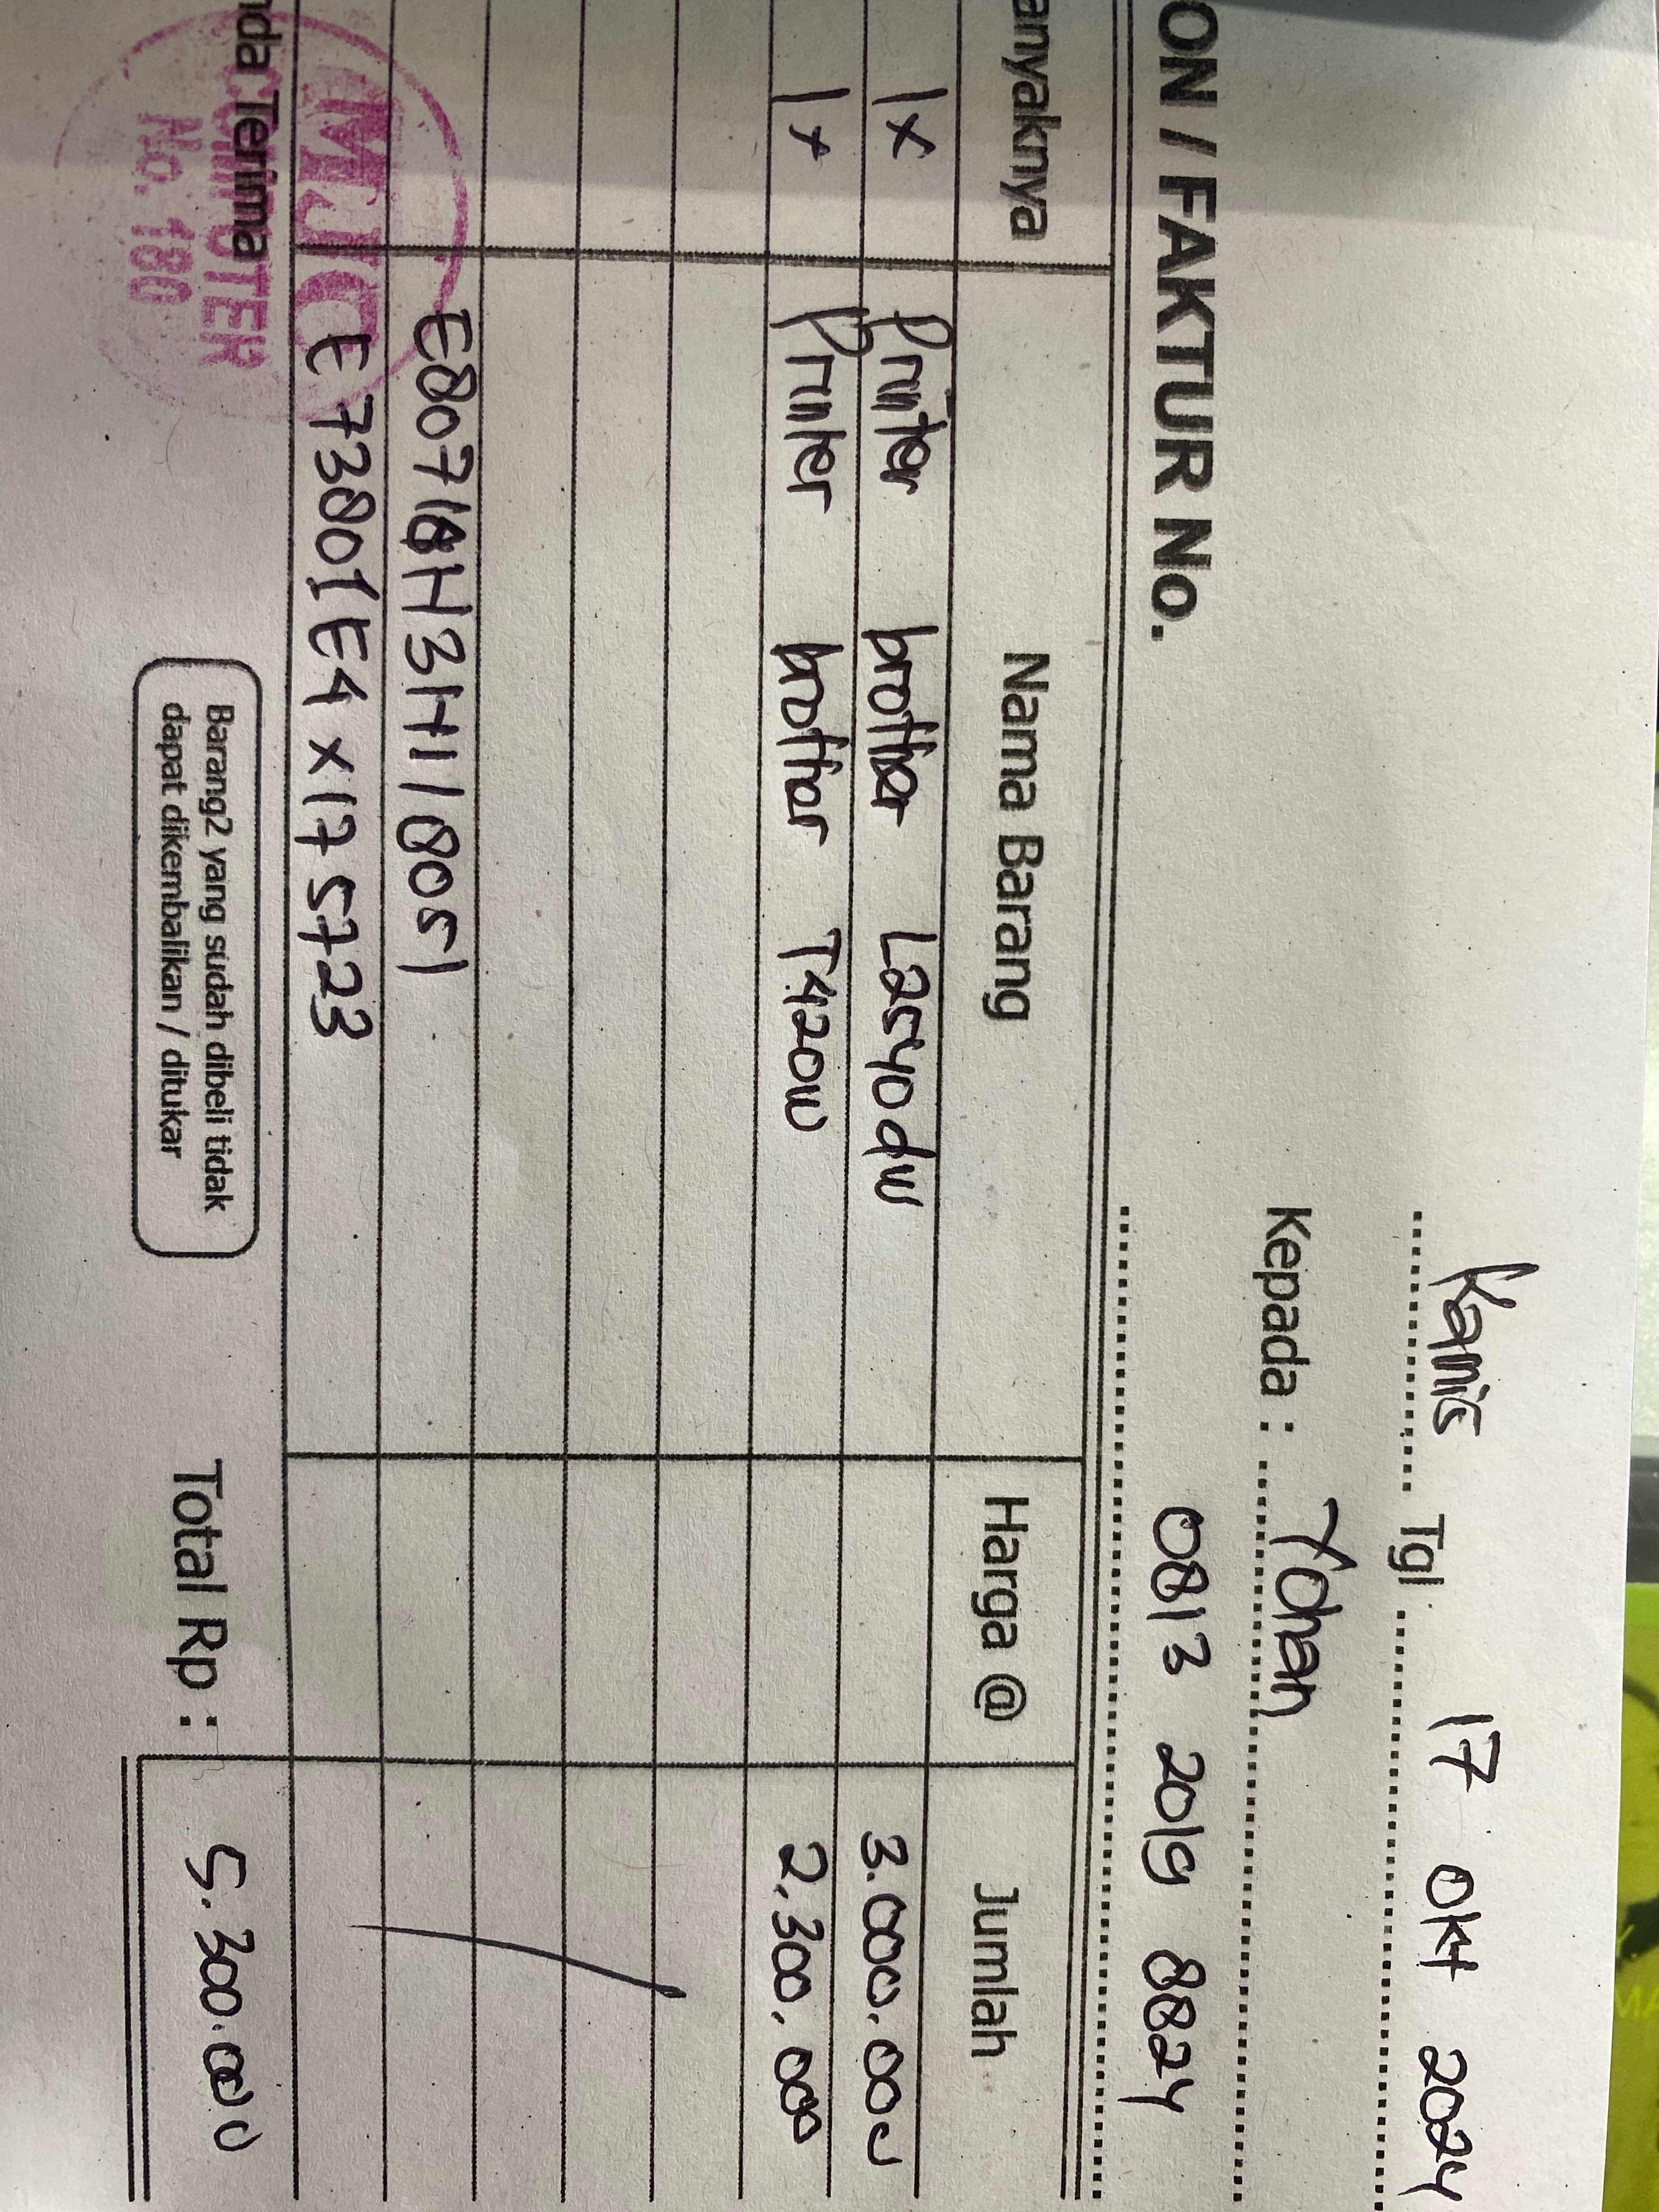 Kamis Tgl. 17 okt 2024
Kepada : Yohan
0813 2019 8824
ON / FAKTUR No.
anyaknya Nama Barang Harga @ Jumlah
1x Printer brother L2540dw 3.000.000
1x Printer brother T420w 2.300.000
E80718H3H118051
E73801E4x175723
nda Terima
MJC
COMPUTER
No. 180
Barang2 yang sudah dibeli tidak
dapat dikembalikan / ditukar
Total Rp : 5.300.000